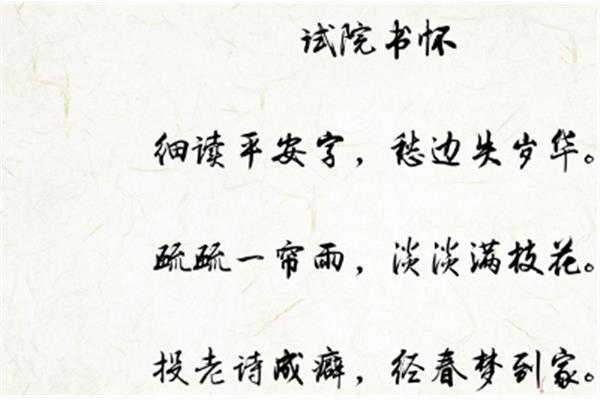 试院书怀
细读平安字，愁边失岁华。
疏疏一帘雨，淡淡满枝花。
投老诗成癖，经春梦到家。